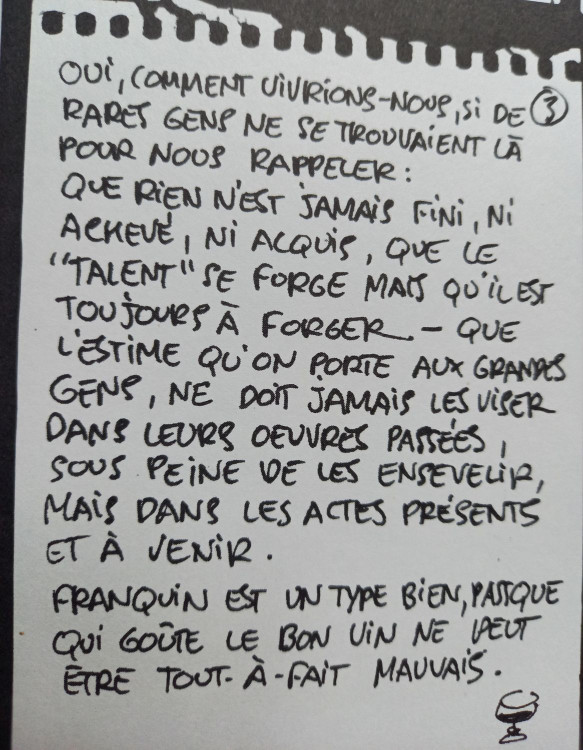 OUI, COMMENT VIVRIONS-NOUS, SI DE ③
RARES GENS NE SE TROUVAIENT LÀ
POUR NOUS RAPPELER :
QUE RIEN N'EST JAMAIS FINI, NI
ACHEVÉ, NI ACQUIS, QUE LE
"TALENT" SE FORGE MAIS QU'IL EST
TOUJOURS À FORGER — QUE
L'ESTIME QU'ON PORTE AUX GRANDES
GENS, NE DOIT JAMAIS LES VISER
DANS LEURS OEUVRES PASSÉES,
SOUS PEINE DE LES ENSEVELIR,
MAIS DANS LES ACTES PRÉSENTS
ET À VENIR.
FRANQUIN EST UN TYPE BIEN, PASSQUE
QUI GOÛTE LE BON VIN NE PEUT
ÊTRE TOUT-À-FAIT MAUVAIS.